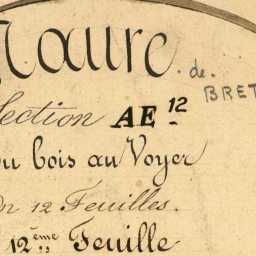 Maure
de
BRET
Section AE 12
Du bois au Voyer
En 12 Feuilles.
12ème Feuille